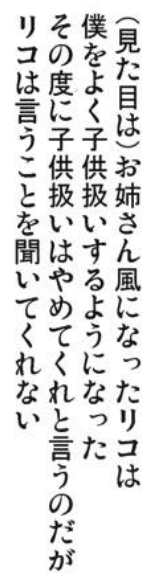 （見た目は）お姉さん風になったリコは
僕をよく子供扱いするようになった
その度に子供扱いはやめてくれと言うのだが
リコは言うことを聞いてくれない